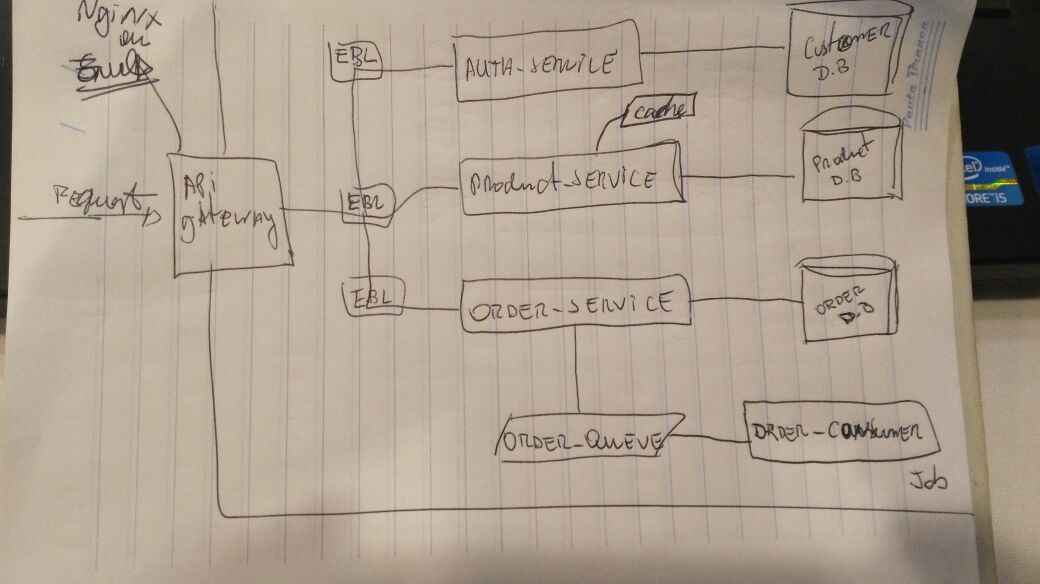 Nginx
ou
Request
API
gateway
EBL
AUTH-SERVICE
Customer
D.B
cache
EBL
Product-SERVICE
Product
D.B
EBL
ORDER-SERVICE
ORDER
D.B
ORDER-QUEUE
ORDER-CONSUMER
Job
Pauta Branca
intel inside™
CORE i5